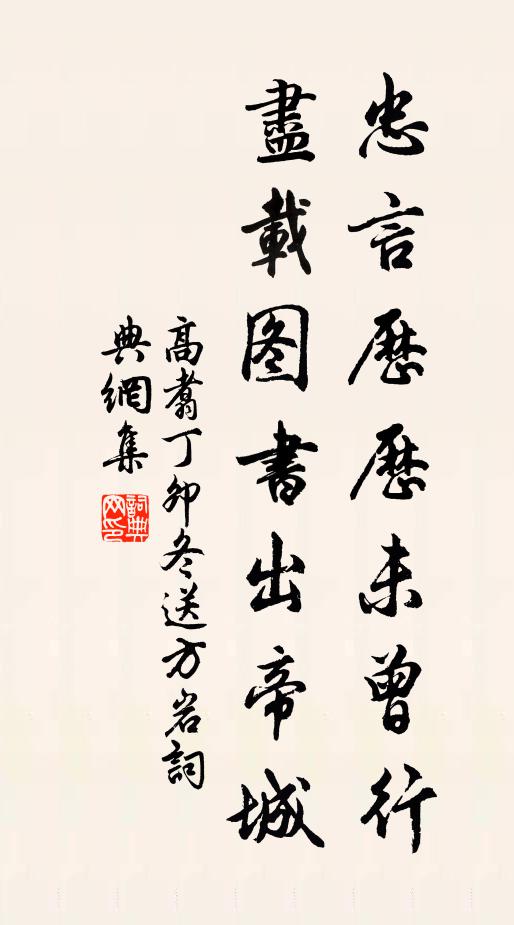 忠言歷歷未曾行
盡載图書出帝城
高翥丁卯冬送方岩詞
典網集
詞典
网印